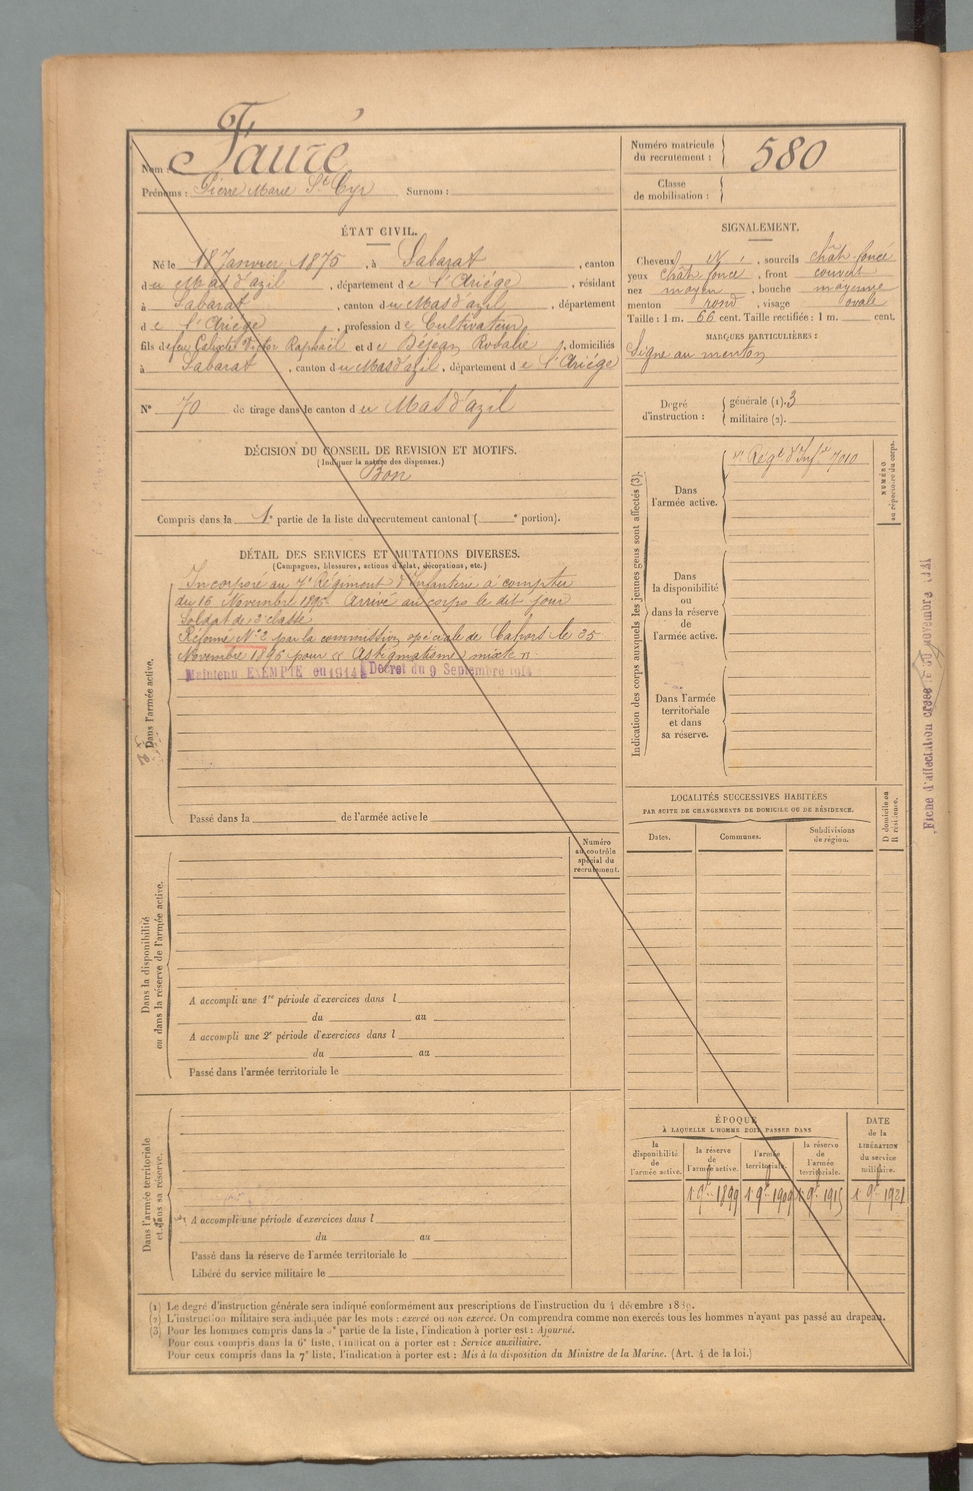 Nom : Fauré
Prénoms : Pierre Marie St Cyr Surnom :
ÉTAT CIVIL.
Né le 18 Janvier 1875, à Sabarat, canton
du Mas d'azil, département de l'Ariége, résidant
à Sabarat, canton du Mas d'azil, département
de l'Ariége, profession de Cultivateur
fils de feu Calixte Victor Raphaël et de Déjean Rosalie, domiciliés
à Sabarat, canton du Mas d'azil, département de l'Ariége
N° 70 de tirage dans le canton du Mas d'azil
DÉCISION DU CONSEIL DE REVISION ET MOTIFS.
(Indiquer la nature des dispenses.)
Bon
Compris dans la 1e partie de la liste du recrutement cantonal ( e portion).
DÉTAIL DES SERVICES ET MUTATIONS DIVERSES.
(Campagnes, blessures, actions d'éclat, décorations, etc.)
Dans l'armée active.
Incorporé au 7e Régiment d'Infanterie à compter
du 16 Novembre 1896 Arrivé au corps le dit jour
Soldat de 2e classe
Réformé N° 2 par la commission spéciale de Cahors le 25
Novembre 1896 pour « Astigmatisme mixte ».
Maintenu EXEMPTÉ en 1914 Décret du 9 Septembre 1914
Passé dans la de l'armée active le
Numéro
au contrôle
spécial du
recrutement.
Dans la disponibilité
ou dans la réserve de l'armée active.
A accompli une 1re période d'exercices dans l
du au
A accompli une 2e période d'exercices dans l
du au
Passé dans l'armée territoriale le
Dans l'armée territoriale
et dans sa réserve.
A accompli une période d'exercices dans l
du au
Passé dans la réserve de l'armée territoriale le
Libéré du service militaire le
Numéro matricule
du recrutement : 580
Classe
de mobilisation :
SIGNALEMENT.
Cheveux , sourcils chât foncé
yeux chât foncé, front couvert
nez moyen, bouche moyenne
menton rond, visage ovale
Taille : 1 m. 66 cent. Taille rectifiée : 1 m. cent.
MARQUES PARTICULIÈRES :
Signe au menton
Degré
d'instruction :
générale (1). 3
militaire (2).
Indication des corps auxquels les jeunes gens sont affectés (3).
Dans
l'armée active.
7e Régt d'Infie 7010
NUMÉRO
au répertoire du corps.
Dans
la disponibilité
ou
dans la réserve
de
l'armée active.
Dans l'armée
territoriale
et dans
sa réserve.
LOCALITÉS SUCCESSIVES HABITÉES
PAR SUITE DE CHANGEMENTS DE DOMICILE OU DE RÉSIDENCE.
Dates. Communes. Subdivisions
de région.
D domicile ou
R résidence.
ÉPOQUE
À LAQUELLE L'HOMME DOIT PASSER DANS
la
disponibilité
de
l'armée active.
la réserve
de
l'armée active.
l'armée
territoriale.
la réserve
de
l'armée
territoriale.
DATE
de la
LIBÉRATION
du service
militaire.
1 9bre 1899 1 9bre 1909 1 9bre 1915 1 9bre 1921
(1) Le degré d'instruction générale sera indiqué conformément aux prescriptions de l'instruction du 4 décembre 1889.
(2) L'instruction militaire sera indiquée par les mots : exercé ou non exercé. On comprendra comme non exercés tous les hommes n'ayant pas passé au drapeau.
(3) Pour les hommes compris dans la 2e partie de la liste, l'indication à porter est : Ajourné.
Pour ceux compris dans la 6e liste, l'indication à porter est : Service auxiliaire.
Pour ceux compris dans la 7e liste, l'indication à porter est : Mis à la disposition du Ministre de la Marine. (Art. 4 de la loi.)
Fiche d'affectation créée le novembre